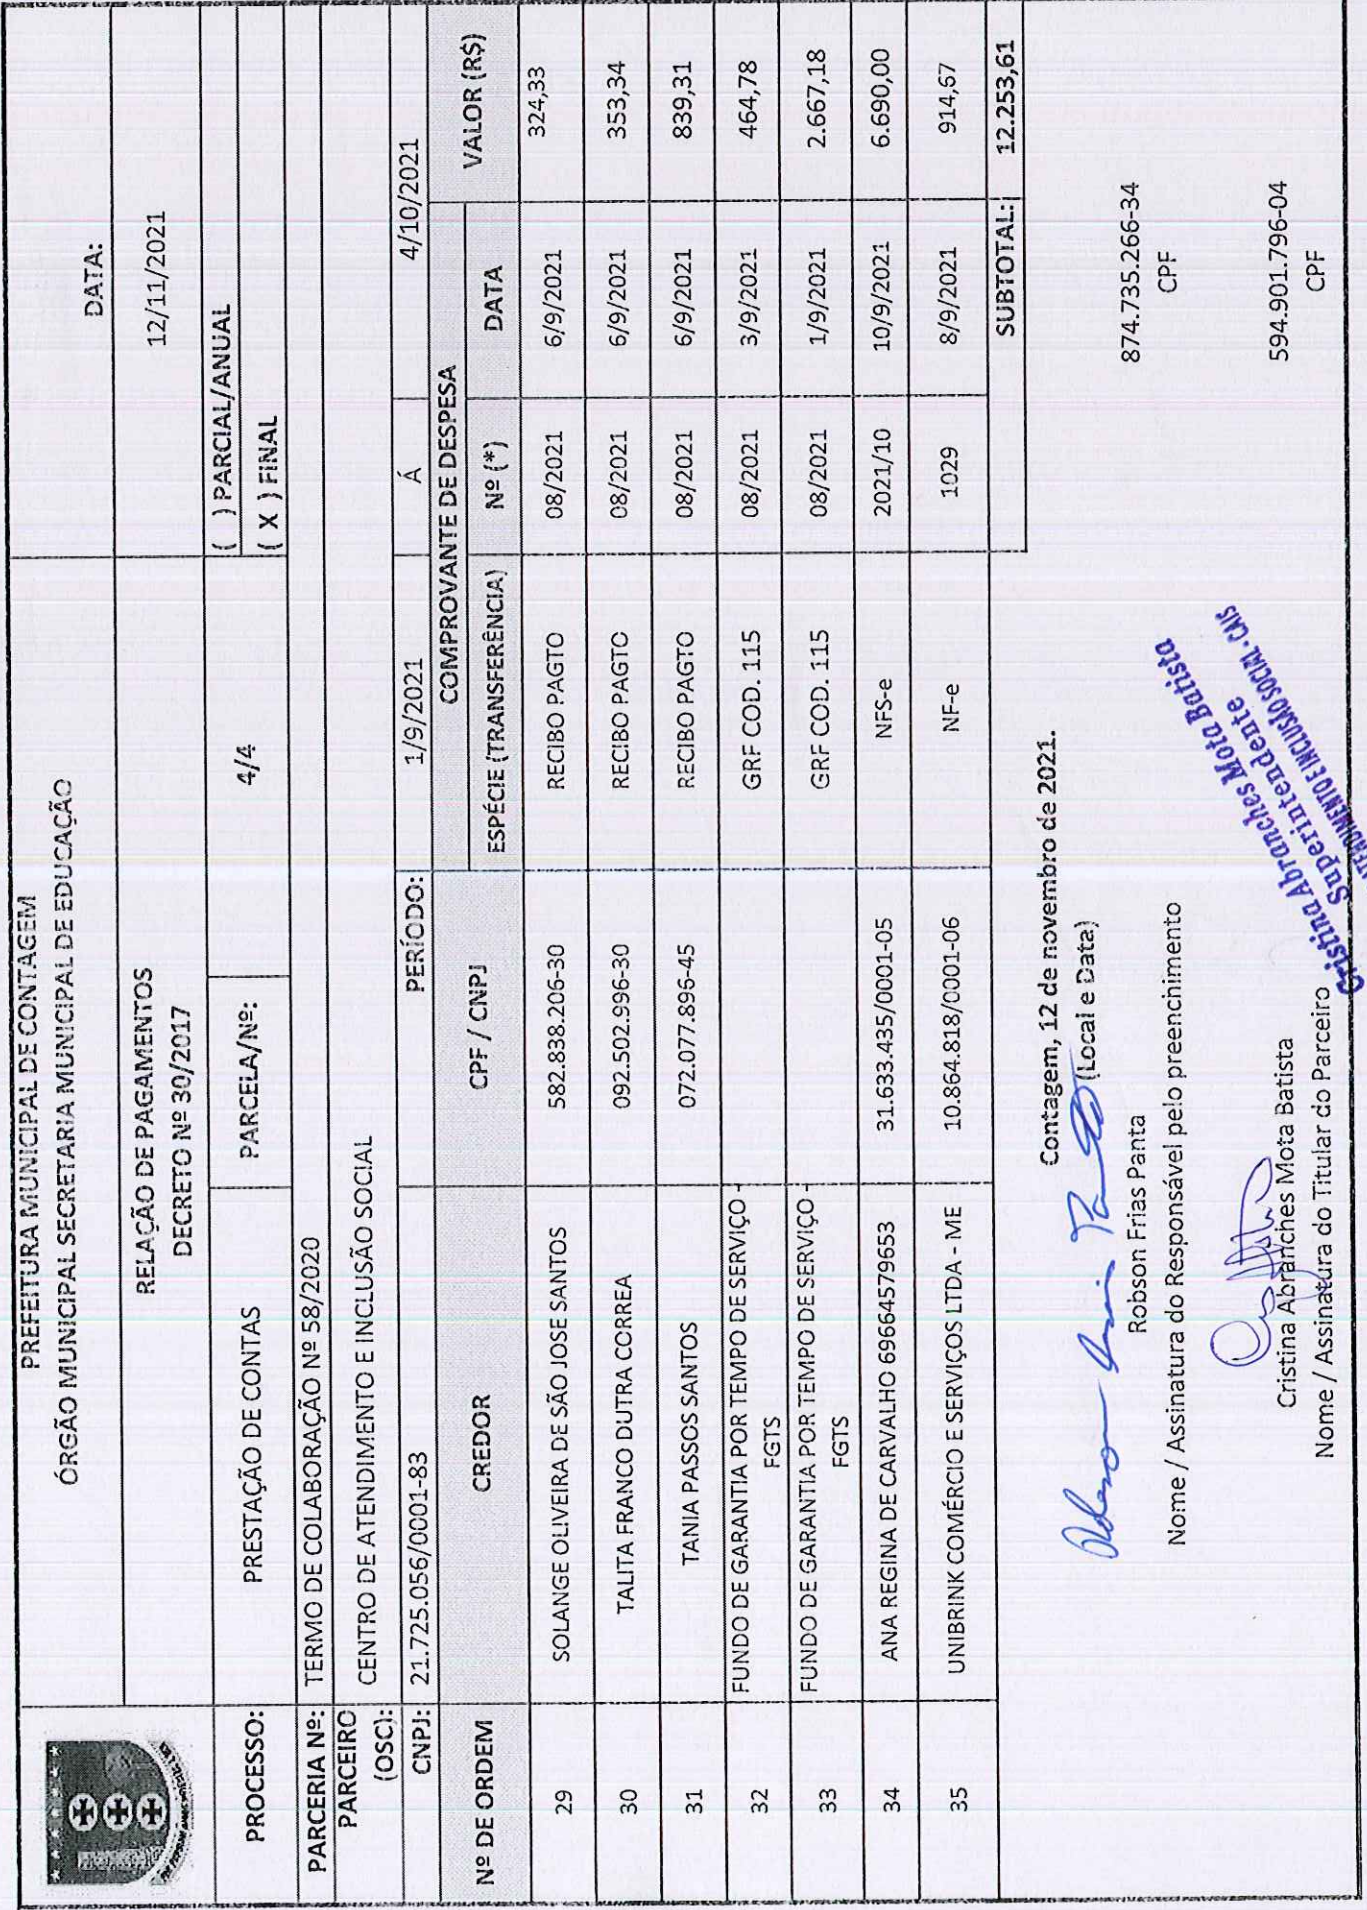 PREFEITURA MUNICIPAL DE CONTAGEM
ÓRGÃO MUNICIPAL SECRETARIA MUNICIPAL DE EDUCAÇÃO
DATA:
RELAÇÃO DE PAGAMENTOS
DECRETO Nº 30/2017
12/11/2021
PROCESSO: PRESTAÇÃO DE CONTAS PARCELA/Nº: 4/4
( ) PARCIAL/ANUAL
( X ) FINAL
PARCERIA Nº: TERMO DE COLABORAÇÃO Nº 58/2020
PARCEIRO (OSC): CENTRO DE ATENDIMENTO E INCLUSÃO SOCIAL
CNPJ: 21.725.056/0001-83 PERÍODO: 1/9/2021 Á 4/10/2021
COMPROVANTE DE DESPESA
Nº DE ORDEM CREDOR CPF / CNPJ ESPÉCIE (TRANSFERÊNCIA) Nº (*) DATA VALOR (R$)
29 SOLANGE OLIVEIRA DE SÃO JOSE SANTOS 582.838.206-30 RECIBO PAGTO 08/2021 6/9/2021 324,33
30 TALITA FRANCO DUTRA CORREA 092.502.996-30 RECIBO PAGTO 08/2021 6/9/2021 353,34
31 TANIA PASSOS SANTOS 072.077.896-45 RECIBO PAGTO 08/2021 6/9/2021 839,31
32 FUNDO DE GARANTIA POR TEMPO DE SERVIÇO - FGTS GRF COD. 115 08/2021 3/9/2021 464,78
33 FUNDO DE GARANTIA POR TEMPO DE SERVIÇO - FGTS GRF COD. 115 08/2021 1/9/2021 2.667,18
34 ANA REGINA DE CARVALHO 69664579653 31.633.435/0001-05 NFS-e 2021/10 10/9/2021 6.690,00
35 UNIBRINK COMÉRCIO E SERVIÇOS LTDA - ME 10.864.818/0001-06 NF-e 1029 8/9/2021 914,67
SUBTOTAL: 12.253,61
Contagem, 12 de novembro de 2021.
(Local e Data)
Robson Frias Panta
874.735.266-34
Nome / Assinatura do Responsável pelo preenchimento
CPF
Cristina Abranches Mota Batista
Superintendente
ATENDIMENTO E INCLUSÃO SOCIAL - CAIS
Cristina Abranches Mota Batista
594.901.796-04
Nome / Assinatura do Titular do Parceiro
CPF